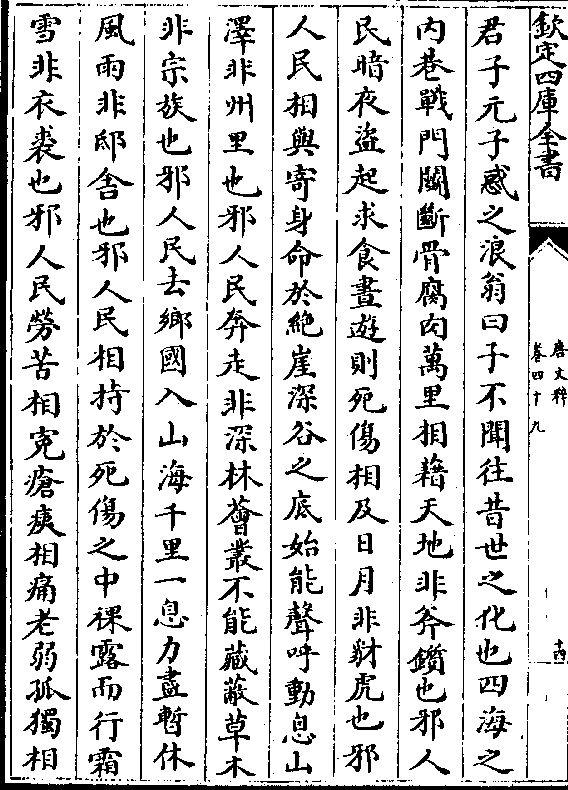 欽定四庫全書
唐文粹
卷四十九
君子元子惑之浪翁曰子不聞往昔世之化也四海之
内巷戰門鬬斷骨腐肉萬里相藉天地非斧鑕也邪人
民暗夜盜起求食晝遊則死傷相及日月非豺虎也邪
人民相與寄身命於絶崖深谷之底始能聲呼動息山
澤非州里也邪人民奔走非深林薈叢不能藏蔽草木
非宗族也邪人民去鄉國入山海千里一息力盡暫休
風雨非邸舍也邪人民相持於死傷之中裸露而行霜
雪非衣裘也邪人民勞苦相寃瘡痍相痛老弱孤獨相